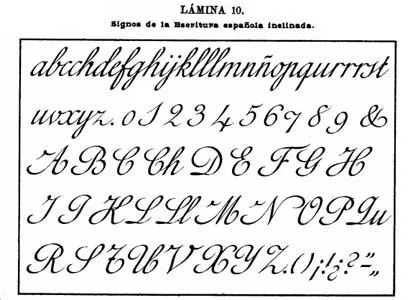 LÁMINA 10.
Signos de la Escritura española inclinada.
abcchdefghijklllmnñopqurrrst
uvxyz. 0 1 2 3 4 5 6 7 8 9 &
A B C Ch D E F G H
I J H L Ll M N O P Qu
R S T U V X Y Z. ( ) ¡ ! ¿ ? " - „